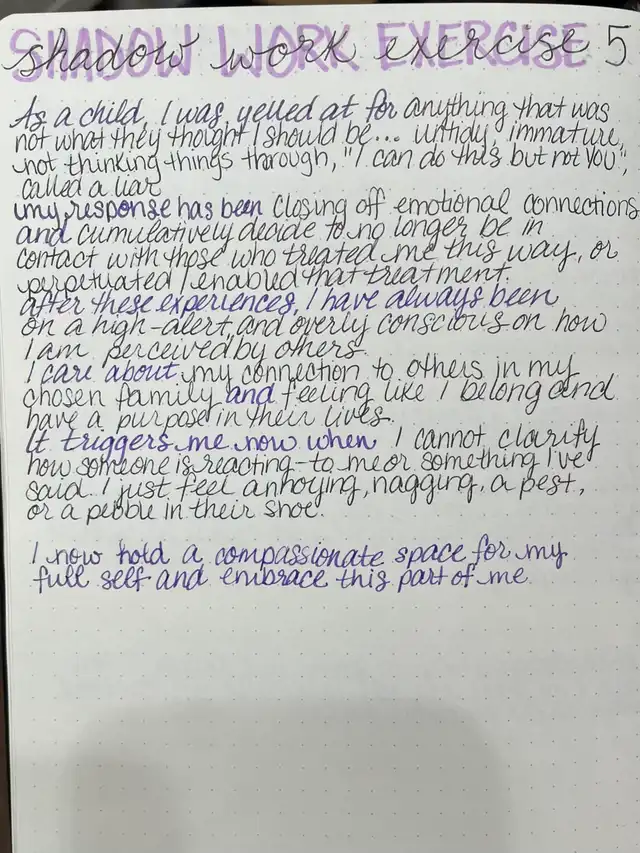 SHADOW WORK EXERCISE
shadow work exercise 5
As a child, I was yelled at for anything that was
not what they thought I should be... untidy, immature,
not thinking things through, "I can do this but not you",
called a liar
my response has been closing off emotional connections
and cumulatively decide to no longer be in
contact with those who treated me this way, or
perpetuated/enabled that treatment.
after these experiences, I have always been
on a high-alert, and overly conscious on how
I am perceived by others.
I care about my connection to others in my
chosen family and feeling like I belong and
have a purpose in their lives.
It triggers me now when I cannot clarify
how someone is reacting-to me or something I've
said. I just feel annoying, nagging, a pest,
or a pebble in their shoe.
I now hold a compassionate space for my
full self and embrace this part of me